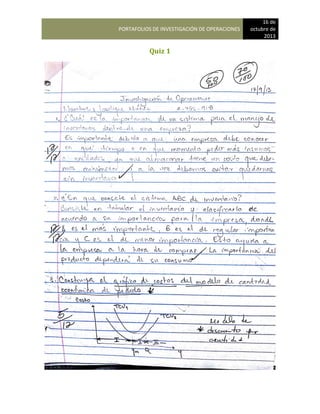 PORTAFOLIOS DE INVESTIGACIÓN DE OPERACIONES
16 de
octubre de
2013
Quiz 1
Investigación de Operaciones
1. ¿Cuál es la importancia de un sistema para el manejo de
inventarios dentro de una empresa?
Es importante debido a que una empresa debe conocer
en que tiempo o en que momento pedir más
o cantidades, ya que almacenar tiene un costo que debe-
mos minimizar y a la vez debemos evitar quedarnos
sin inventario
2. ¿En que consiste el sistema ABC de inventario?
Consiste en tabular el inventario y clasificarlo de
acuerdo a su importancia para la empresa, donde
A es el más importante, B es el de regular importan-
cia y C es el de menor importancia. Esto ayuda a
la empresa a la hora de comprar. La importancia del
producto dependerá de su consumo
3. Construya el gráfico de costos del modelo de cantidad
económica de pedido
Costo
TCU1
TCU2
descuento por
cantidad
I
q
y
2